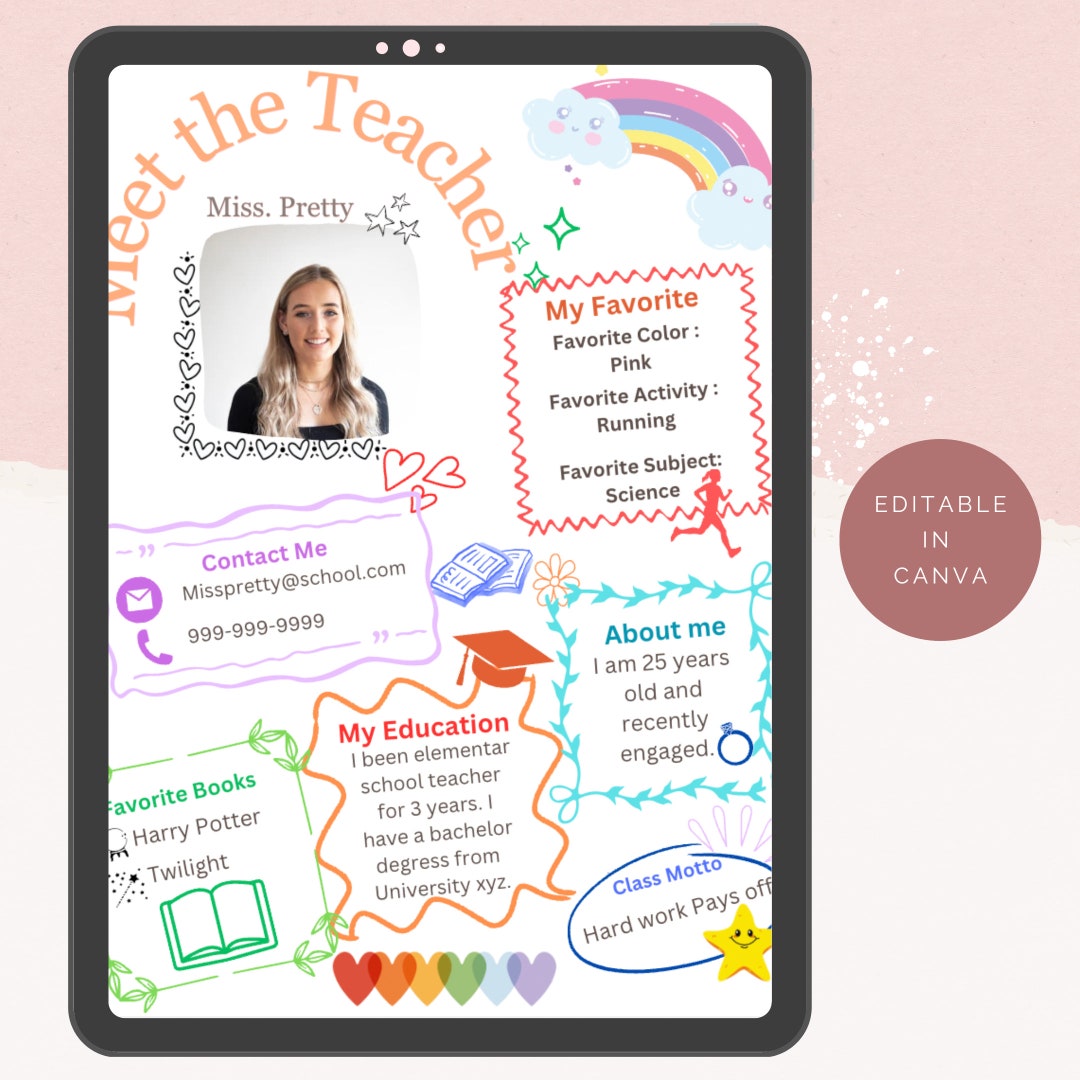 Meet the Teacher
Miss. Pretty
My Favorite
Favorite Color :
Pink
Favorite Activity :
Running
Favorite Subject:
Science
Contact Me
Misspretty@school.com
999-999-9999
About me
I am 25 years
old and
recently
engaged.
My Education
I been elementar
school teacher
for 3 years. I
have a bachelor
degress from
University xyz.
Favorite Books
Harry Potter
Twilight
Class Motto
Hard work Pays off
EDITABLE
IN
CANVA